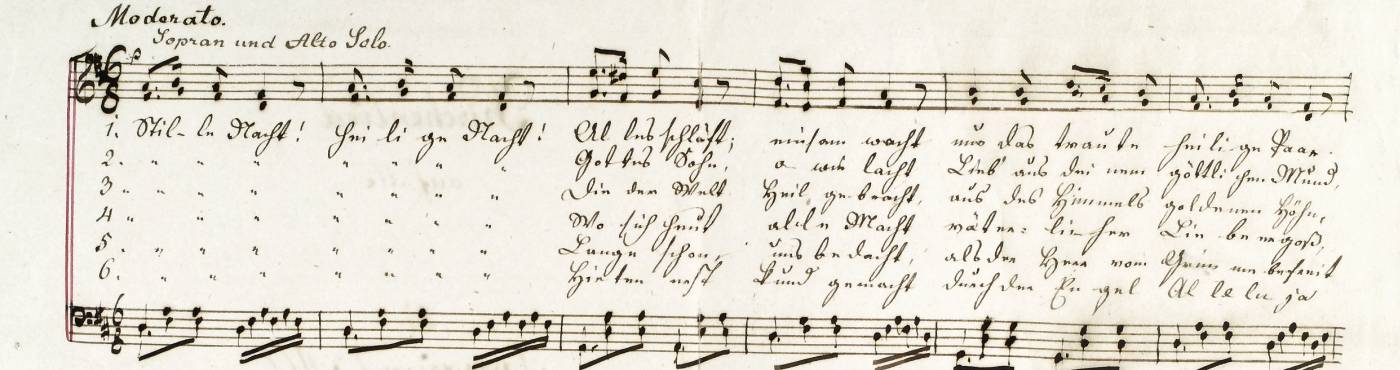 Moderato.
Sopran und Alto Solo.
1. Stil-le Nacht! hei li ge Nacht! Al les schläft; einsam wacht nur das traute heili ge Paar.
2. " " " " " " " Gottes Sohn, o wie lacht Lieb' aus dei nem göttli chen Mund,
3 " " " " " " " " Die der Welt Heil gebracht, aus des Himmels goldenen Höhn,
4 " " " " " " " Wo sich heut alle Macht väter- licher Liebe ergoß,
5. " " " " " " " Lange schon, uns bedacht, als der Herr vom Grim me befreit
6. " " " " " " " Hirten erst kund gemacht durch der En gel Al le lu ja